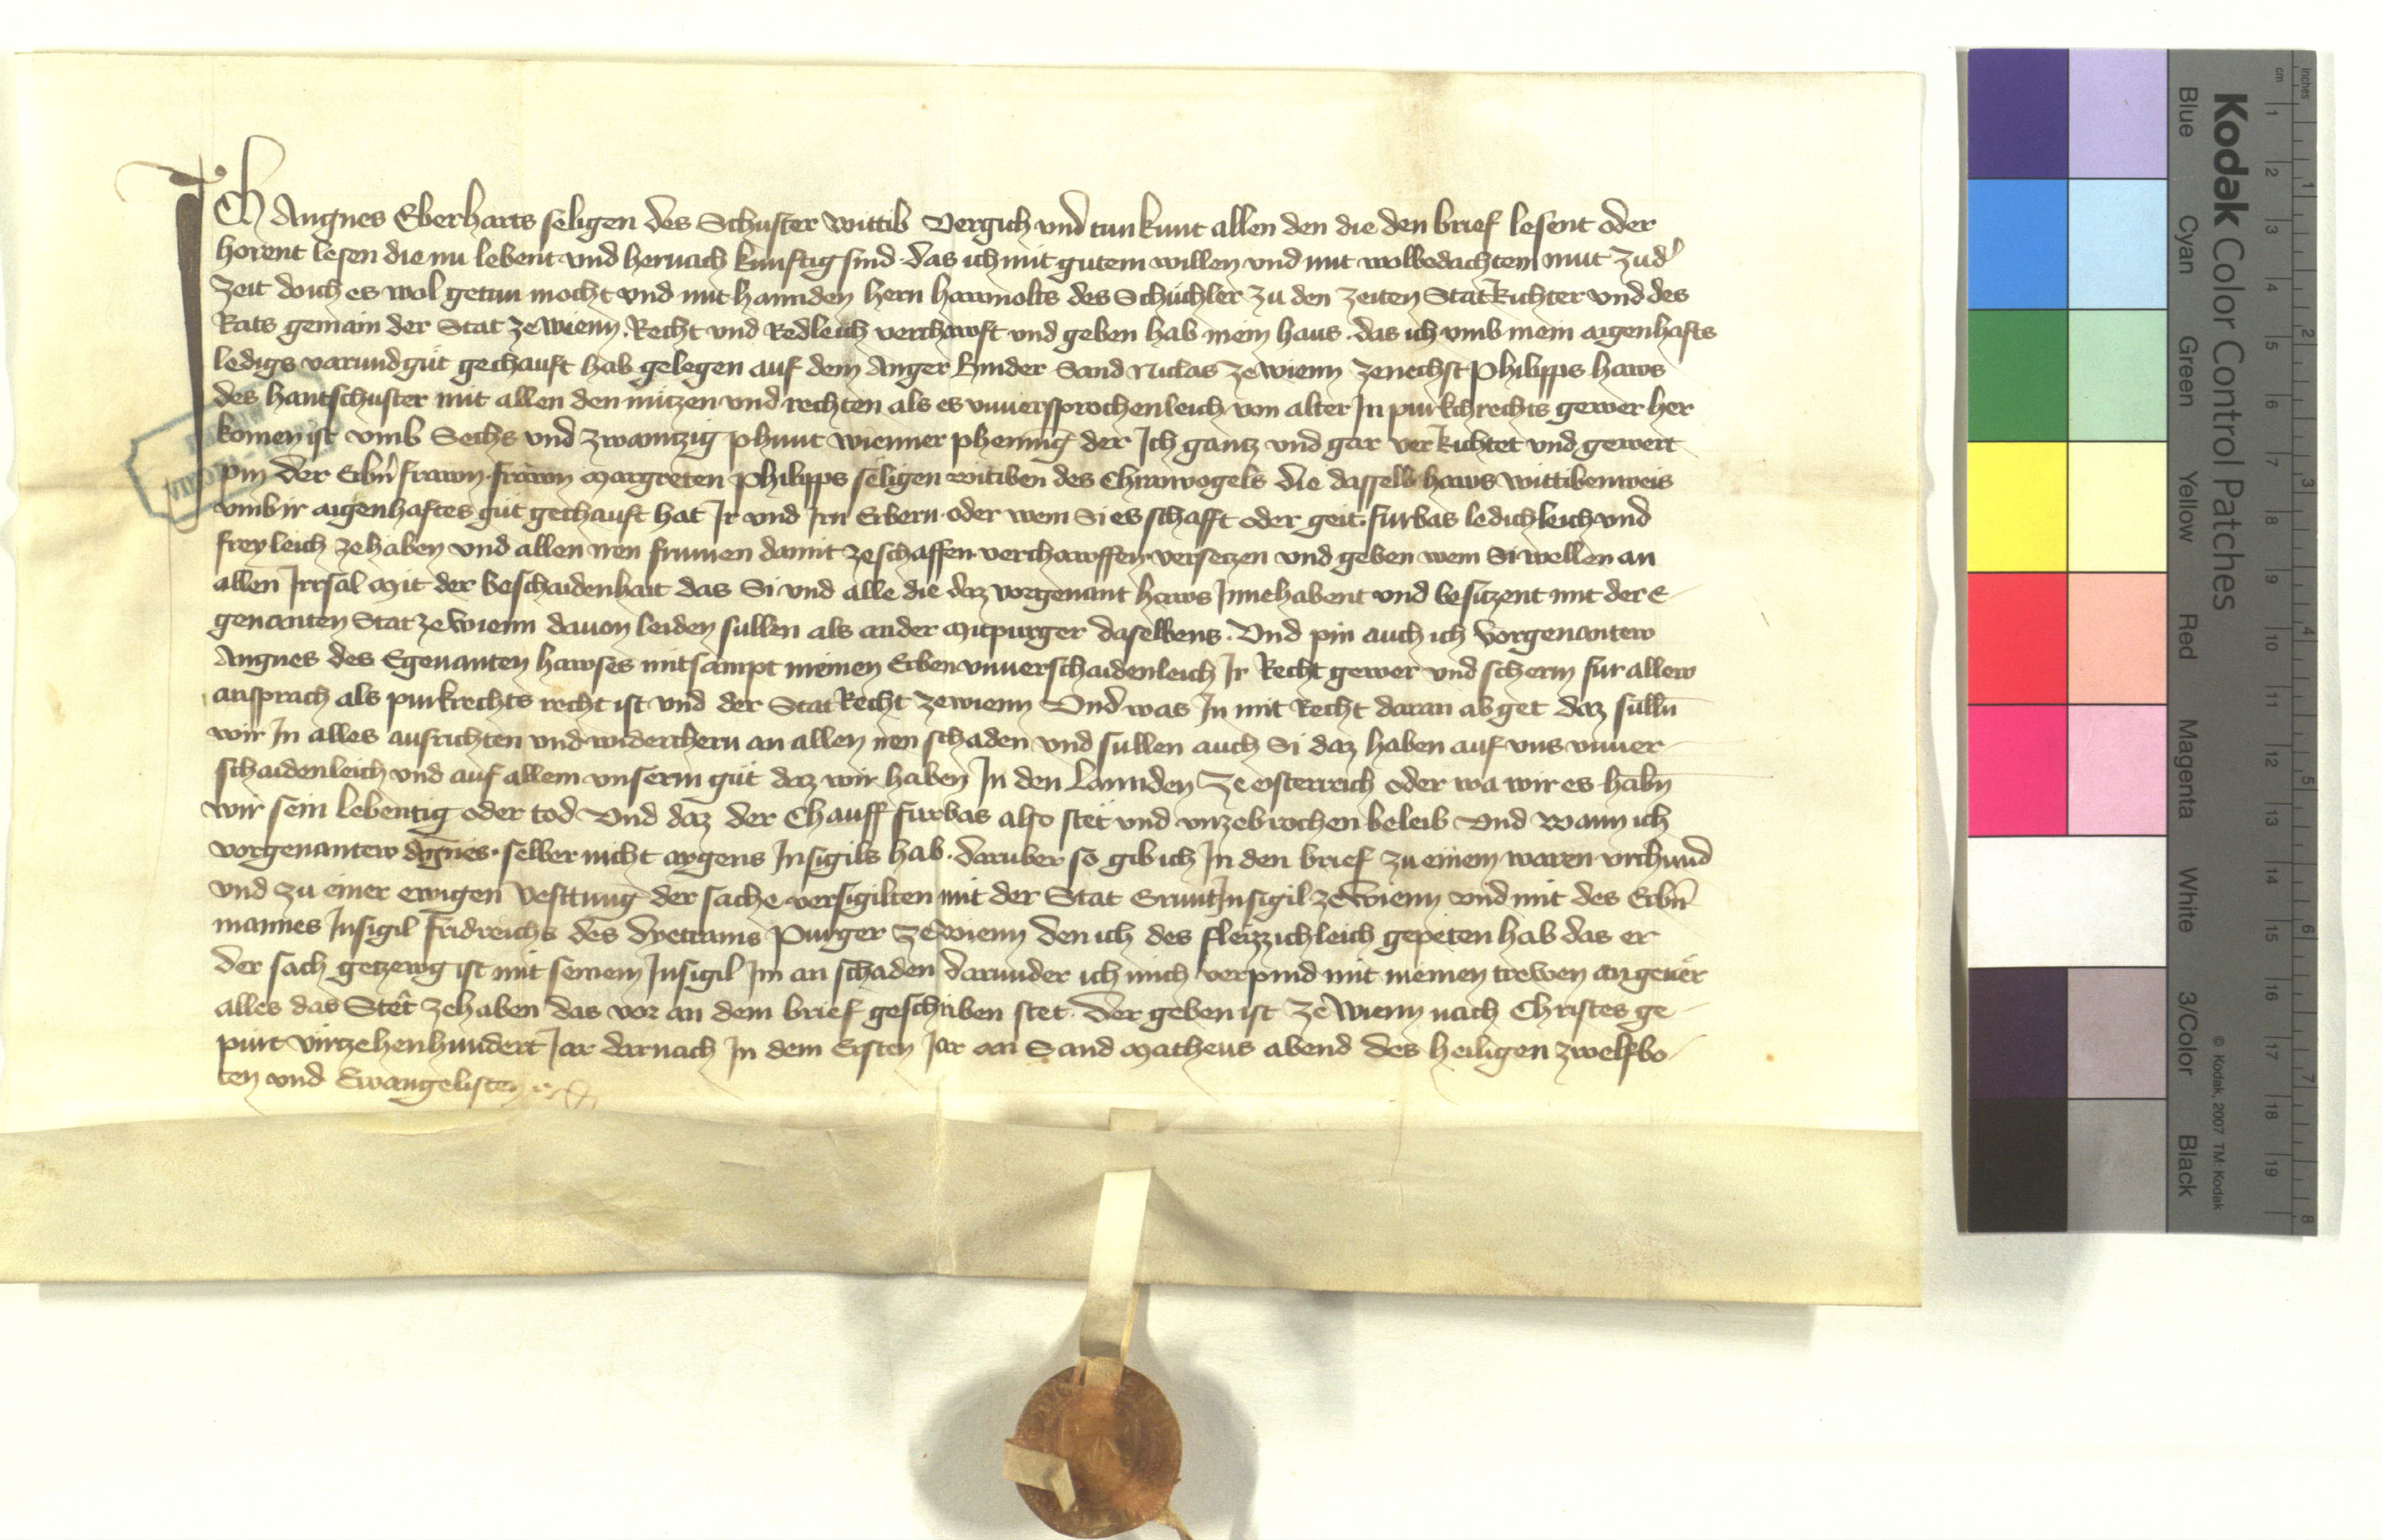 Ich Angnes Eberharts seligen des Schuster wittib Vergich vnd tun kunt allen den die den brief lesent oder
horent lesen die nu lebent vnd hernach kunftig sind das ich mit gutem willen vnd mit wolbedachtem mut zu dˀ
Zeit do ich es wol getun mocht vnd mit hannden hern hawnolts des Schuchler zu den zeiten Statrichter vnd des
Rats gemain der Stat ze wienn Recht vnd Redleich verchawft vnd geben hab mein haus das ich vmb mein aigenhafts
ledigs varundgut gechauft hab gelegen auf dem Anger hinder Sand Niclas ze wienn zenechst Philipps haws
des hantschuster mit allen den nutzen vnd rechten als es vnuersprochenleich von alter In purkchrechts gewer her
komen ist vmb Sechs vnd zwaintzig phunt wienner phening der Ich gantz vnd gar verrichtet vnd gewert
pin der Erbn̄ frawn frawn Margreten Philipps seligen witiben des Chrawogels die dasselb haws wittibenweis
vmb ir aigenhaftes gut gechauft hat Ir vnd Irn Erbern oder wem Si es schafft oder geit furbas ledichleich vnd
freyleich ze haben vnd allen iren frumen damit ze schaffen verchawffen versetzen vnd geben wem Si wellen an
allen Irrsal Mit der beschaidenhait das Si vnd alle die daz vorgenant haws Innehabent vnd besitzent mit der E
genanten Stat ze wienn dauon leiden sullen als ander Mitpurger daselbens Vnd pin auch ich Vorgenantew
Angnes des Egenanten hawses mitsampt meinen Erben vnuerschaidenleich Ir Recht gewer vnd scherm fur allew
ansprach als purkrechts recht ist vnd der Stat Recht ze wienn Vnd was In mit Recht daran abget daz sulln̄
wir In alles ausrichten vnd widerchern an allen iren schaden vnd sullen auch Si daz haben auf vns vnuer
schaidenleich vnd auf allem vnserm gut daz wir haben In den Lannden ze osterreich oder wa wir es habn̄
wir sein lebentig oder tod Vnd daz der Chauff furbas also stet vnd vnzebrochen beleib Vnd wann ich
vorgenantew Agnes selber nicht aygens Insigils hab daruber so gib ich In den brief zu einem waren vrchund
vnd zu einer ewigen Vesttung der sache versigilten mit der Stat GruntInsigil ze wienn vnd mit des Erbn̄
mannes Insigil Fridreichs des dyetrams Purger ze wienn den ich des fleizzichleich gepeten hab das er
der sach getzewg ist mit seinem Insigil Im an schaden darunder ich mich verpind mit meinen trewen angeuer
alles das Stet ze haben das vor an dem brief geschriben stet der geben ist ze wienn nach Christes ge
purt virtzehenhundert Jar darnach In dem Ersten Jar an Sand Matheus abend des heiligen zwelfbo
ten vnd Ewangelisten
Kodak Color Control Patches
Blue Cyan Green Yellow Red Magenta White 3/Color Black
© Kodak, 2007 TM: Kodak
cm 1 2 3 4 5 6 7 8 9 10 11 12 13 14 15 16 17 18 19
inches 1 2 3 4 5 6 7 8